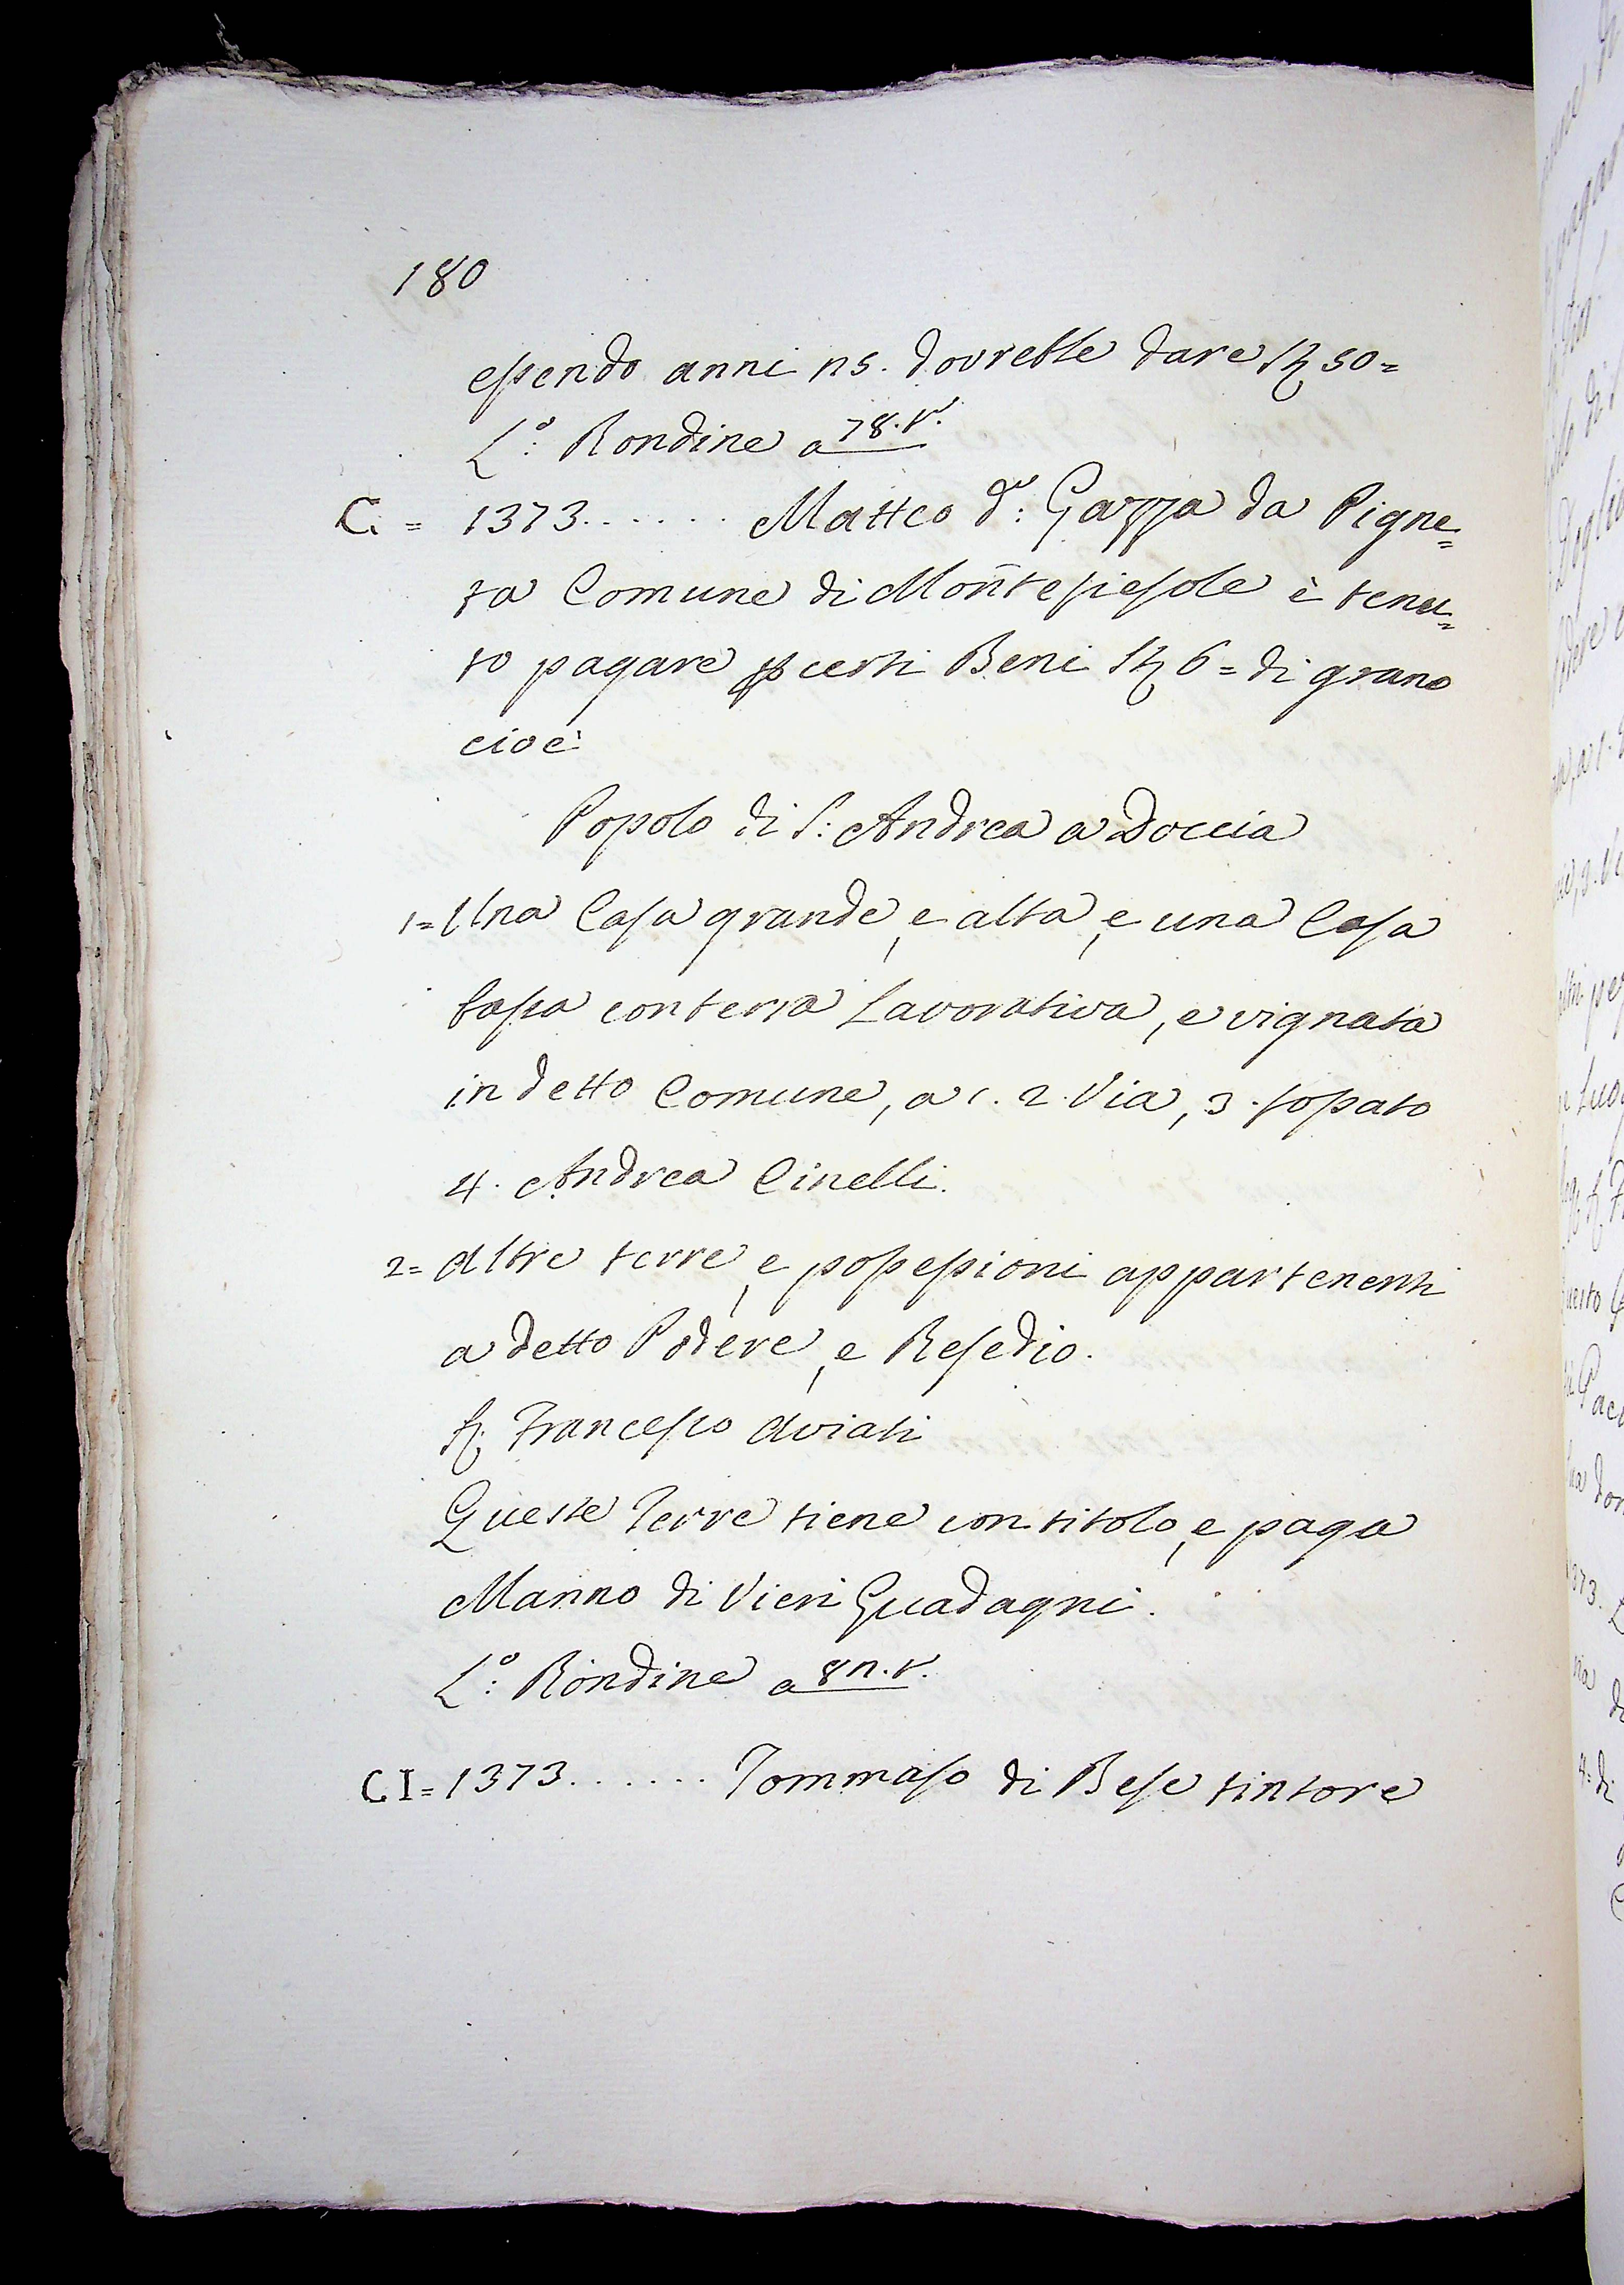 180
essendo anni 25. dovrebbe dare St 50=
L:º Rondine a 78.vº.
C. = 1373...... Matteo dº: Gazza da Pigne=
to Comune di Montefiesole è tenu=
to pagare p certi Beni St 6= di grano
cioè
Popolo di S: Andrea a Doccia
1= Una Casa grande, e alta, e una Casa
bassa con terra Lavorativa, e vignata
in detto Comune, a 1. 2. Via, 3. fossato
4. Andrea Cinelli.
2= Altre terre, e possessioni appartenenti
a detto Podere, e Resedio.
Francesco Aviati
Queste Terre tiene con titolo, e paga
Manno di Vieri Guadagni.
L:º Rondine a 82.v.
CI= 1373...... Tommaso di Bese tintore